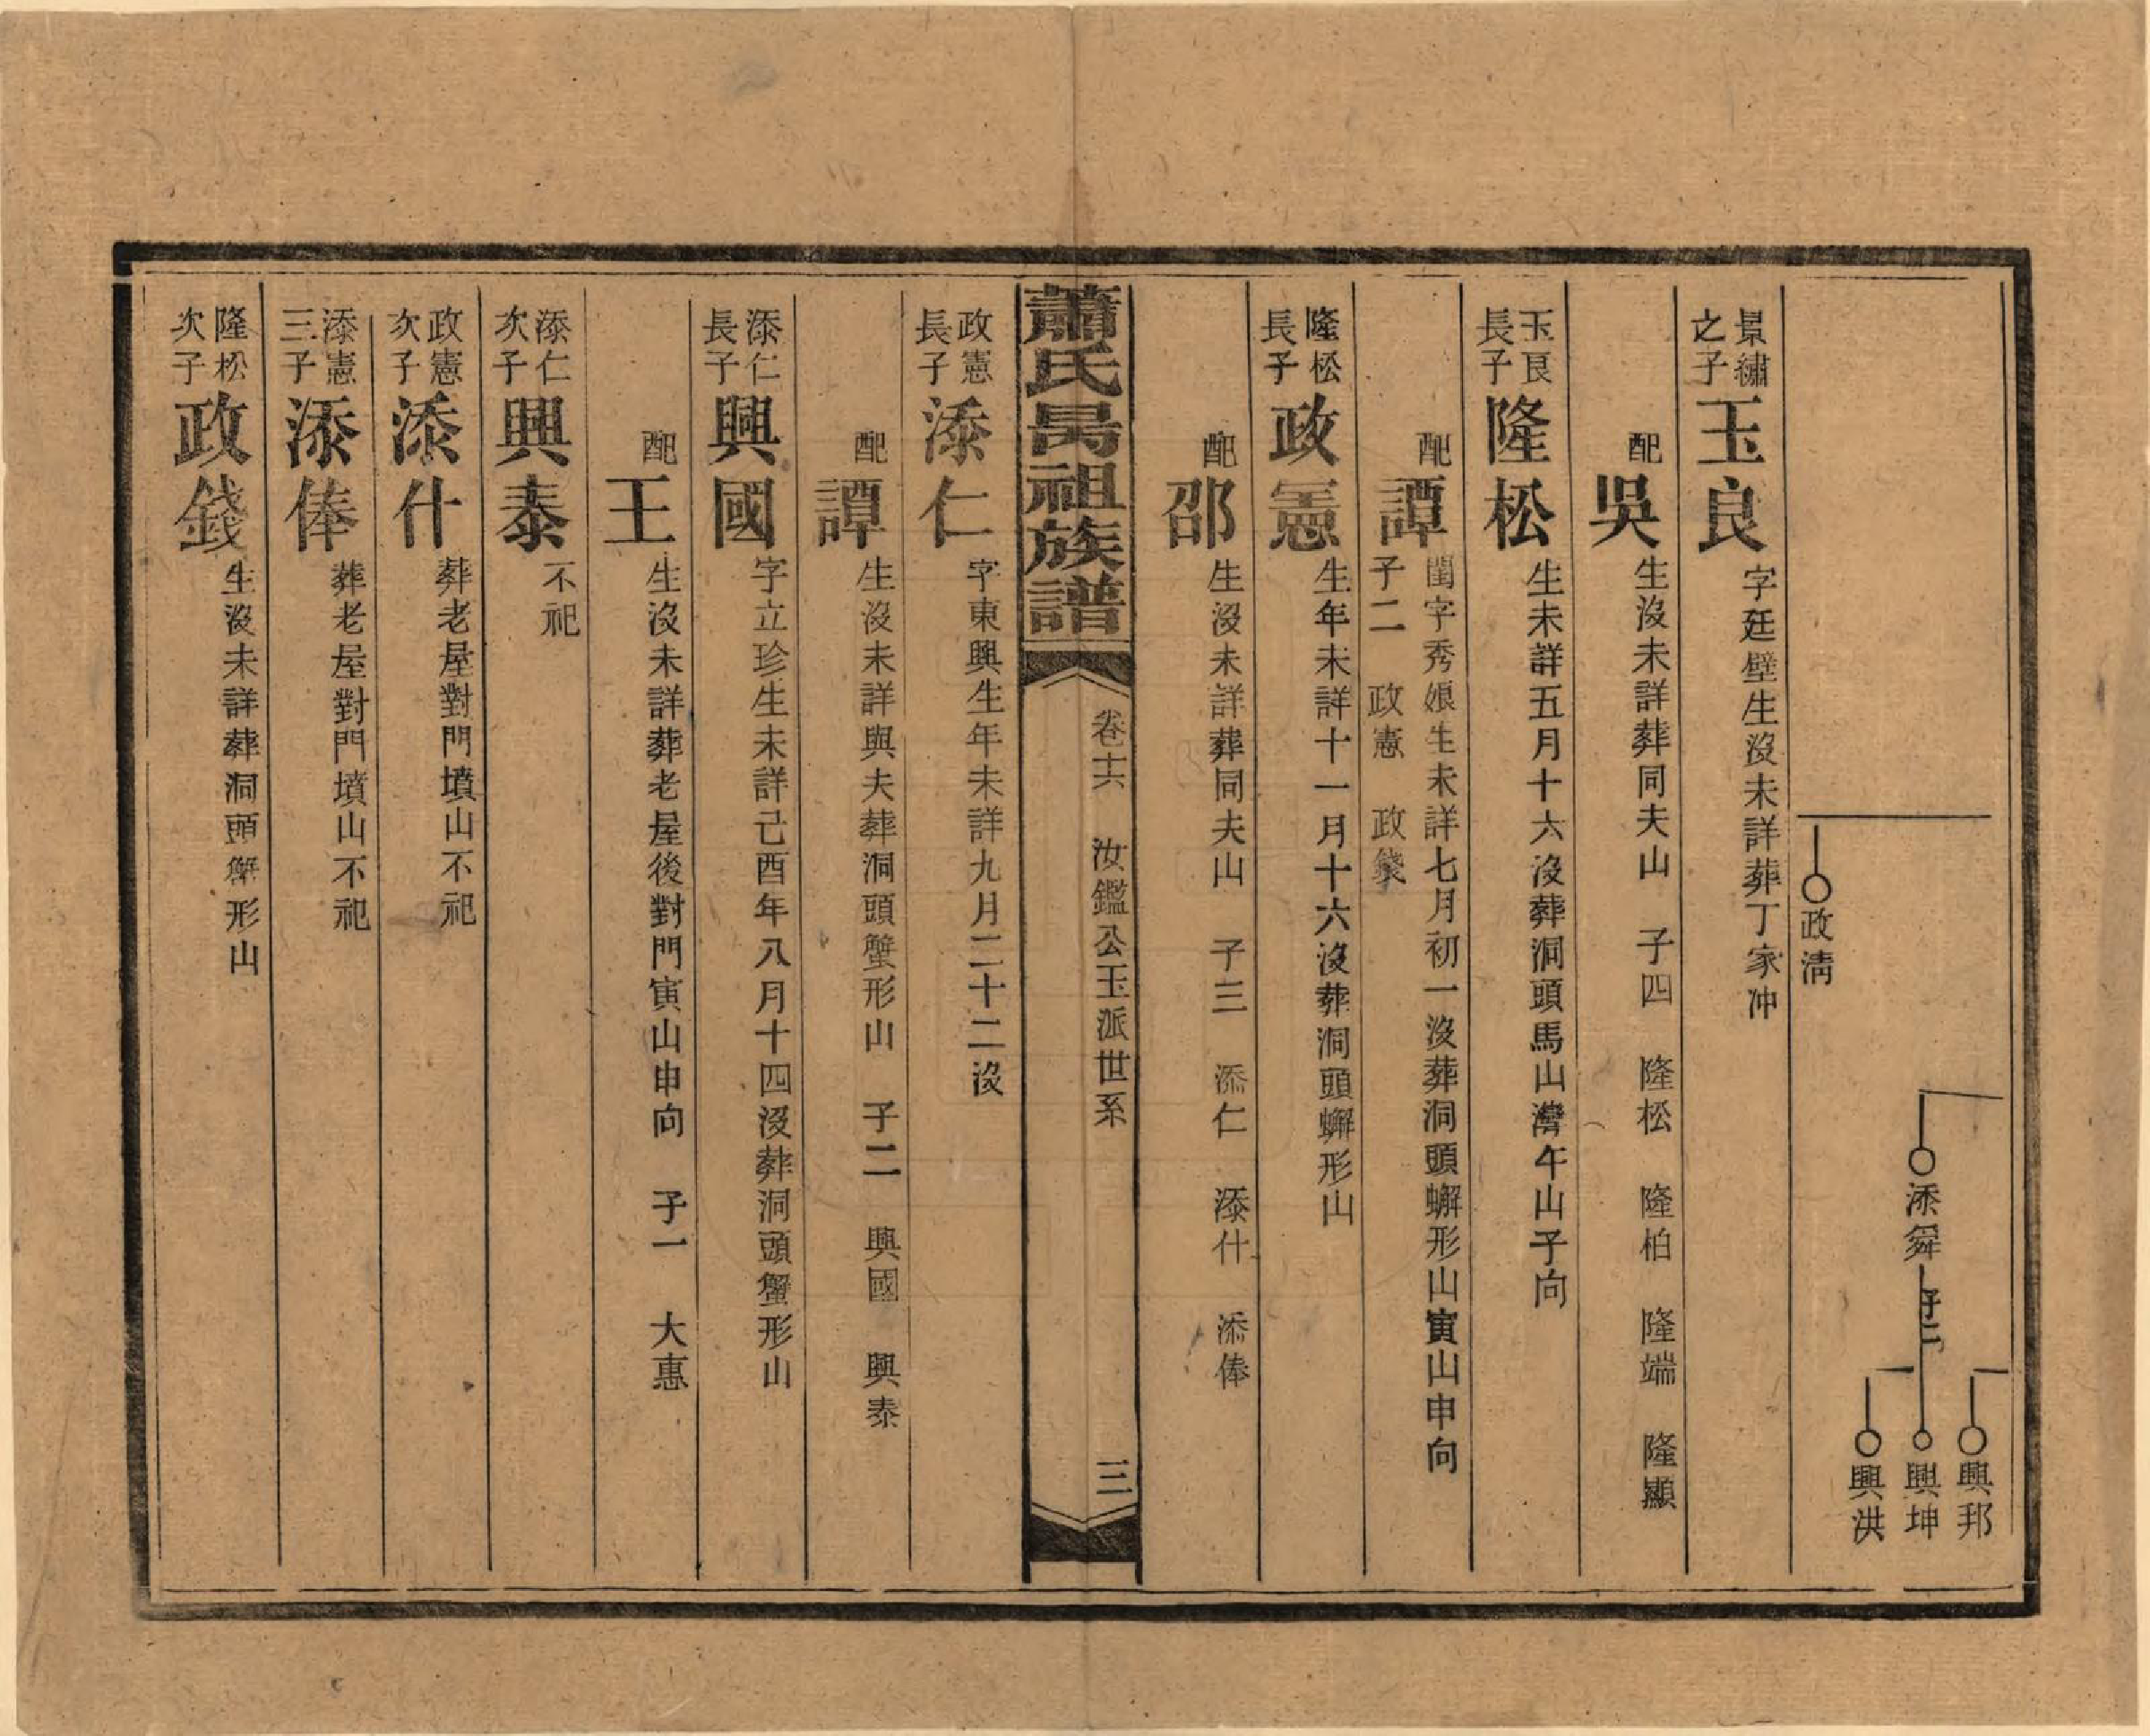 興邦
添舜
興坤
興洪
政清
景繡之子 玉良 字廷璧生沒未詳葬丁家冲
配 吳 生沒未詳葬同夫山 子四 隆松 隆柏 隆端 隆顯
玉良長子 隆松 生未詳五月十六沒葬洞頭馬山灣午山子向
配 譚 閨字秀娘生未詳七月初一沒葬洞頭蠏形山寅山申向
子二 政憲 政錢
隆松長子 政憲 生年未詳十一月十六沒葬洞頭蠏形山
配 邵 生沒未詳葬同夫山 子三 添仁 添什 添俸
蕭氏昺祖族譜 卷十六 汝鑑公玉派世系 三
政憲長子 添仁 字東興生年未詳九月二十二沒
配 譚 生沒未詳與夫葬洞頭蟹形山 子二 興國 興泰
添仁長子 興國 字立珍生未詳己酉年八月十四沒葬洞頭蟹形山
配 王 生沒未詳葬老屋後對門寅山申向 子一 大惠
添仁次子 興泰 不祀
政憲次子 添什 葬老屋對門墳山不祀
添憲三子 添俸 葬老屋對門墳山不祀
隆松次子 政錢 生沒未詳葬洞頭蟹形山